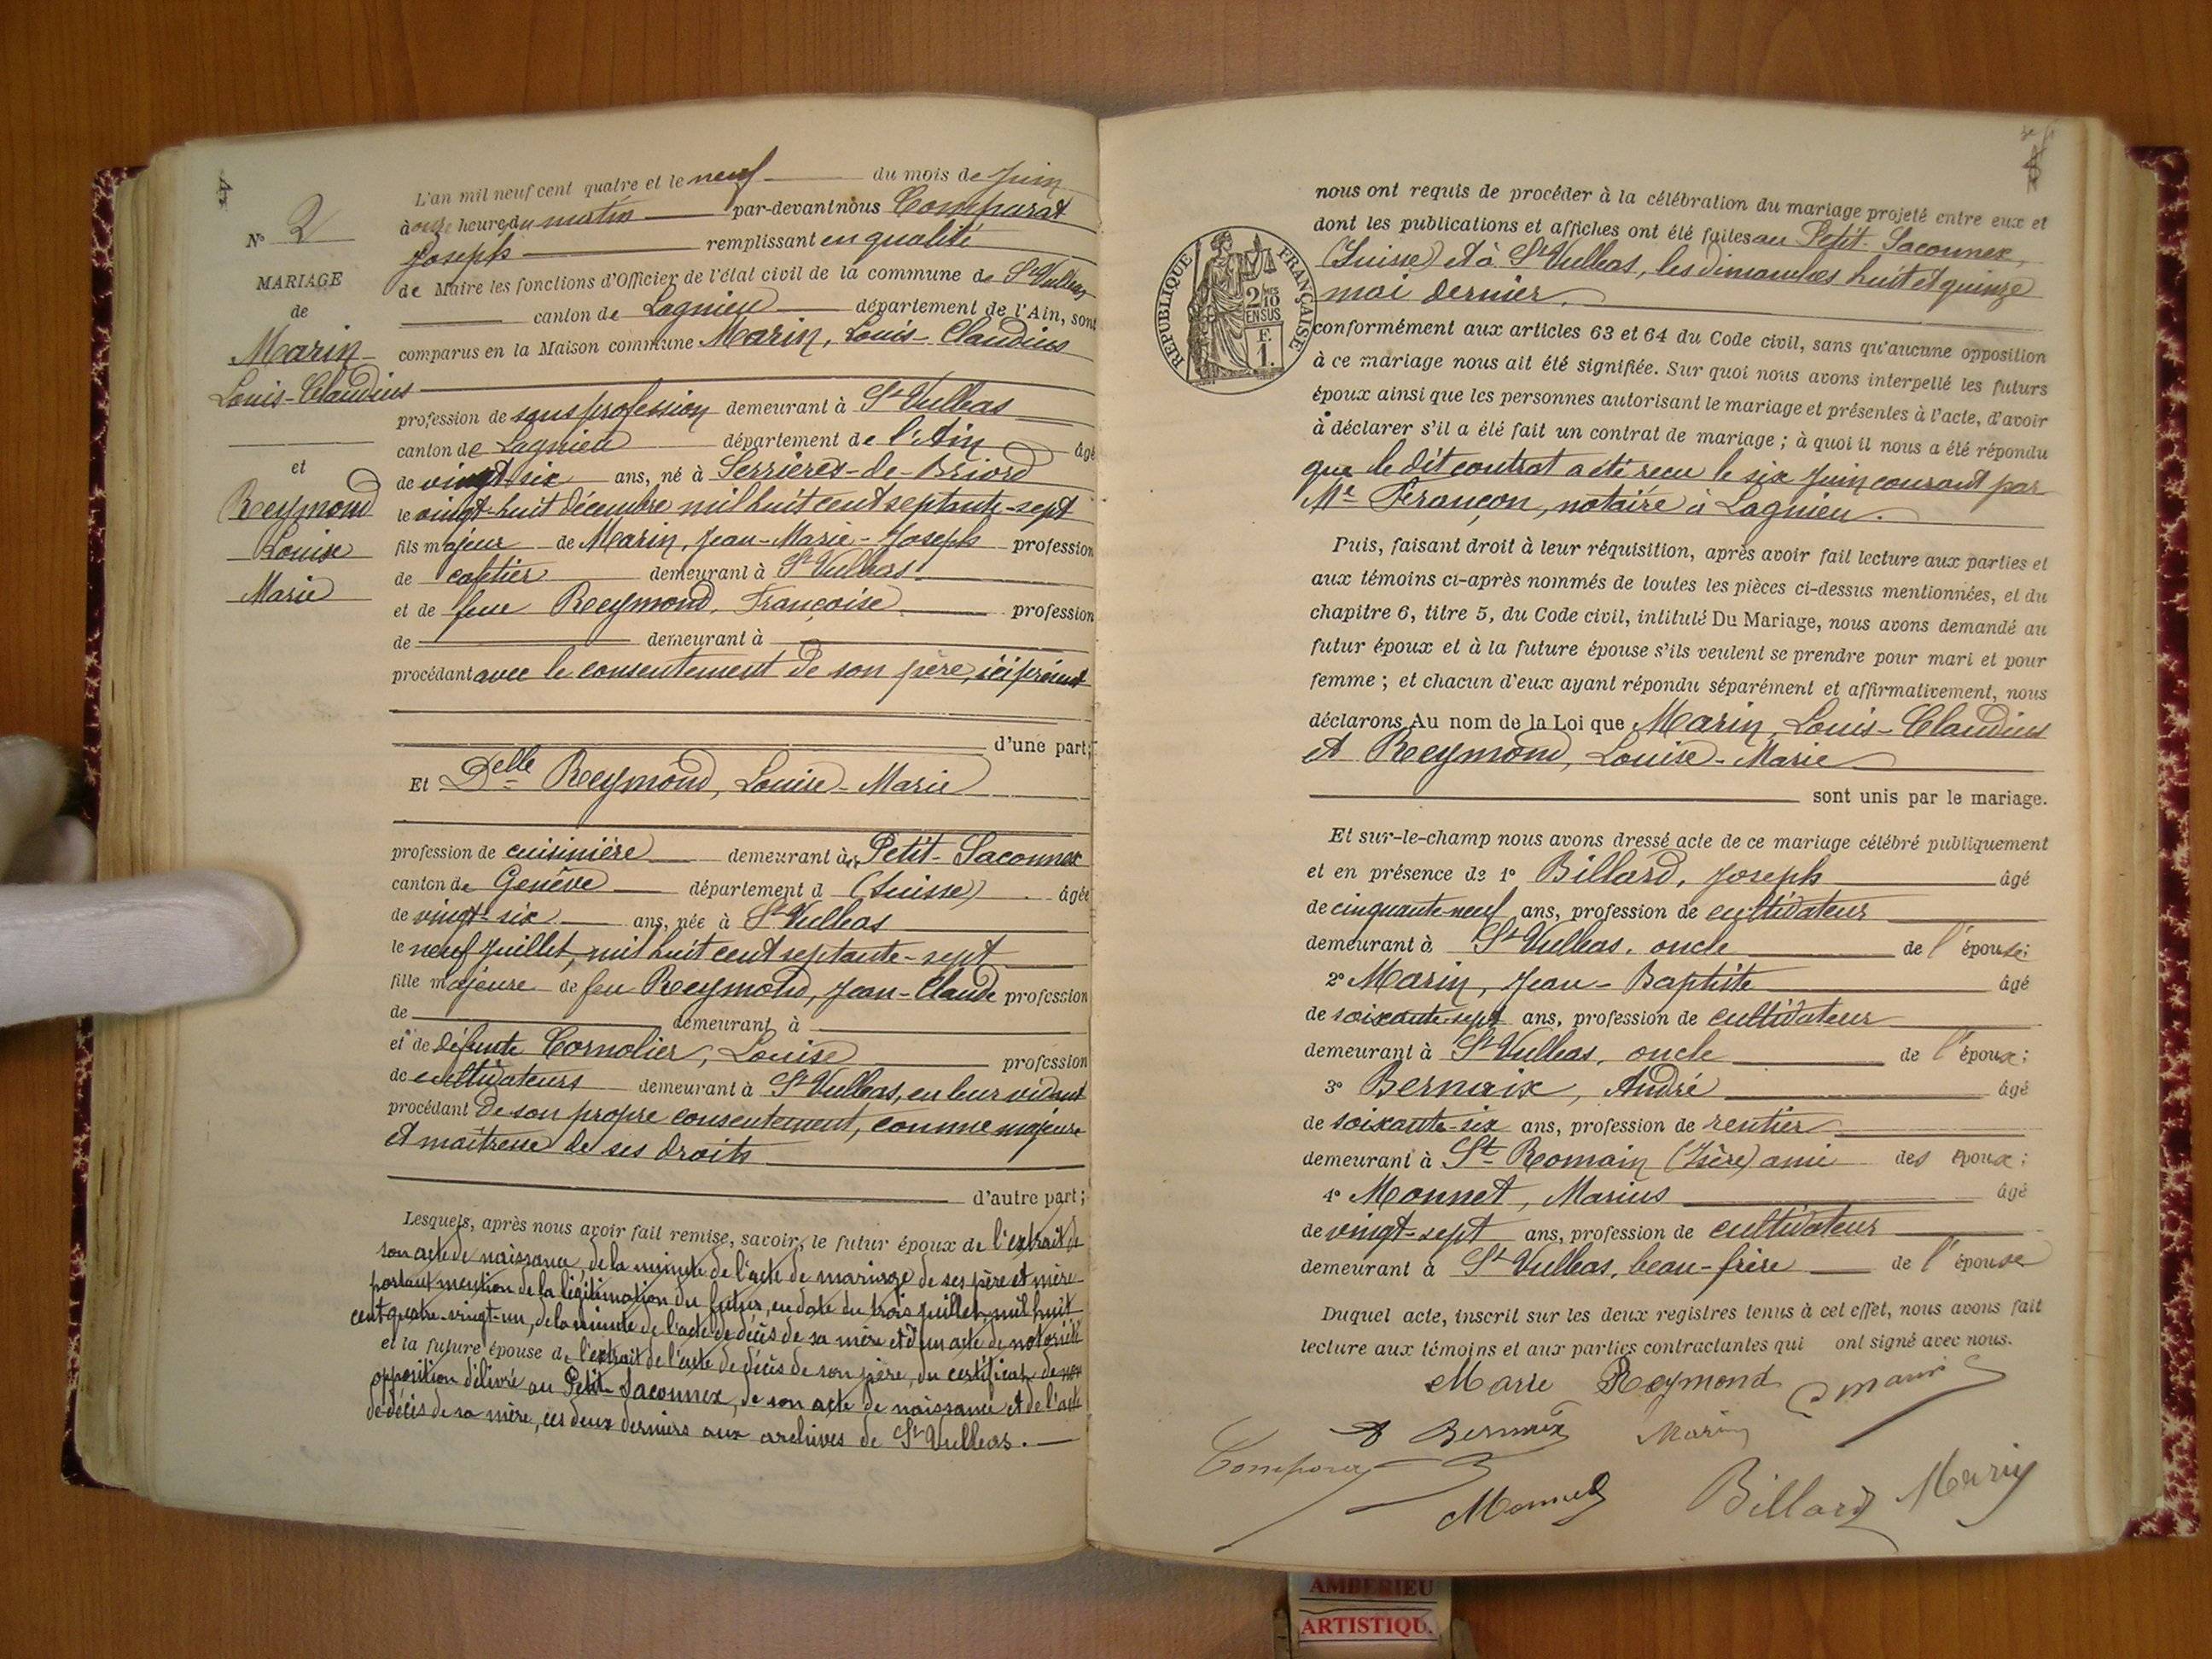 4
N° 2
MARIAGE
de
Marin
Louis-Claudius
et
Reymond
Louise
Marie
L'an mil neuf cent quatre et le neuf du mois de Juin
à onze heure du matin par-devant nous Comparat
Joseph remplissant en qualité
de Maire les fonctions d'Officier de l'état civil de la commune de St Vulbas
canton de Lagnieu département de l'Ain, sont
comparus en la Maison commune Marin, Louis-Claudius
profession de sans profession demeurant à St Vulbas
canton de Lagnieu département de l'Ain âgé
de vingt-six ans, né à Serrières-de-Briord
le vingt-huit décembre mil huit cent septante-sept
fils majeur de Marin, Jean-Marie-Joseph profession
de cafetier demeurant à St Vulbas
et de feue Reymond, Françoise profession
de demeurant à
procédant avec le consentement de son père, ici présent
d'une part;
Et Delle Reymond, Louise-Marie
profession de cuisinière demeurant à Petit-Saconnex
canton de Genève département d (Suisse) âgée
de vingt-six ans, née à St Vulbas
le neuf Juillet, mil huit cent septante-sept
fille majeure de feu Reymond, Jean-Claude profession
de demeurant à
et de défunte Cornolier, Louise profession
de cultivateurs demeurant à St Vulbas, en leur vivant
procédant de son propre consentement, comme majeure
et maîtresse de ses droits
d'autre part;
Lesquels, après nous avoir fait remise, savoir, le futur époux de l'extrait de
son acte de naissance, de la minute de l'acte de mariage de ses père et mère
portant mention de la légitimation du futur, en date du trois Juillet mil huit
cent quatre-vingt-un, de la minute de l'acte de décès de sa mère et d'un acte de notoriété
et la future épouse de l'extrait de l'acte de décès de son père, du certificat de non
opposition délivré au Petit-Saconnex, de son acte de naissance et de l'acte
de décès de sa mère, ces deux derniers aux archives de St Vulbas.
4
REPUBLIQUE FRANÇAISE
2/10 EN SUS
F. 1.
nous ont requis de procéder à la célébration du mariage projeté entre eux et
dont les publications et affiches ont été faites au Petit-Saconnex,
(Suisse) et à St Vulbas, les dimanches huit et quinze
mai dernier.
conformément aux articles 63 et 64 du Code civil, sans qu'aucune opposition
à ce mariage nous ait été signifiée. Sur quoi nous avons interpellé les futurs
époux ainsi que les personnes autorisant le mariage et présentes à l'acte, d'avoir
à déclarer s'il a été fait un contrat de mariage ; à quoi il nous a été répondu
que le dit contrat a été reçu le six Juin courant par
Me Férançon, notaire à Lagnieu.
Puis, faisant droit à leur réquisition, après avoir fait lecture aux parties et
aux témoins ci-après nommés de toutes les pièces ci-dessus mentionnées, et du
chapitre 6, titre 5, du Code civil, intitulé Du Mariage, nous avons demandé au
futur époux et à la future épouse s'ils veulent se prendre pour mari et pour
femme ; et chacun d'eux ayant répondu séparément et affirmativement, nous
déclarons Au nom de la Loi que Marin, Louis-Claudius
et Reymond, Louise-Marie
sont unis par le mariage.
Et sur-le-champ nous avons dressé acte de ce mariage célébré publiquement
et en présence de 1° Billard, Joseph âgé
de cinquante-neuf ans, profession de cultivateur
demeurant à St Vulbas, oncle de l'épouse;
2° Marin, Jean-Baptiste âgé
de soixante-sept ans, profession de cultivateur
demeurant à St Vulbas, oncle de l'époux;
3° Bernaix, André âgé
de soixante-six ans, profession de rentier
demeurant à St Romain (Isère) ami des époux;
4° Monnet, Marius âgé
de vingt-sept ans, profession de cultivateur
demeurant à St Vulbas, beau-frère de l'épouse
Duquel acte, inscrit sur les deux registres tenus à cet effet, nous avons fait
lecture aux témoins et aux parties contractantes qui ont signé avec nous.
Marie Reymond Marin
Bernaix Marin
Comparat
Monnet Billard Marin
AMBERIEU
ARTISTIQU